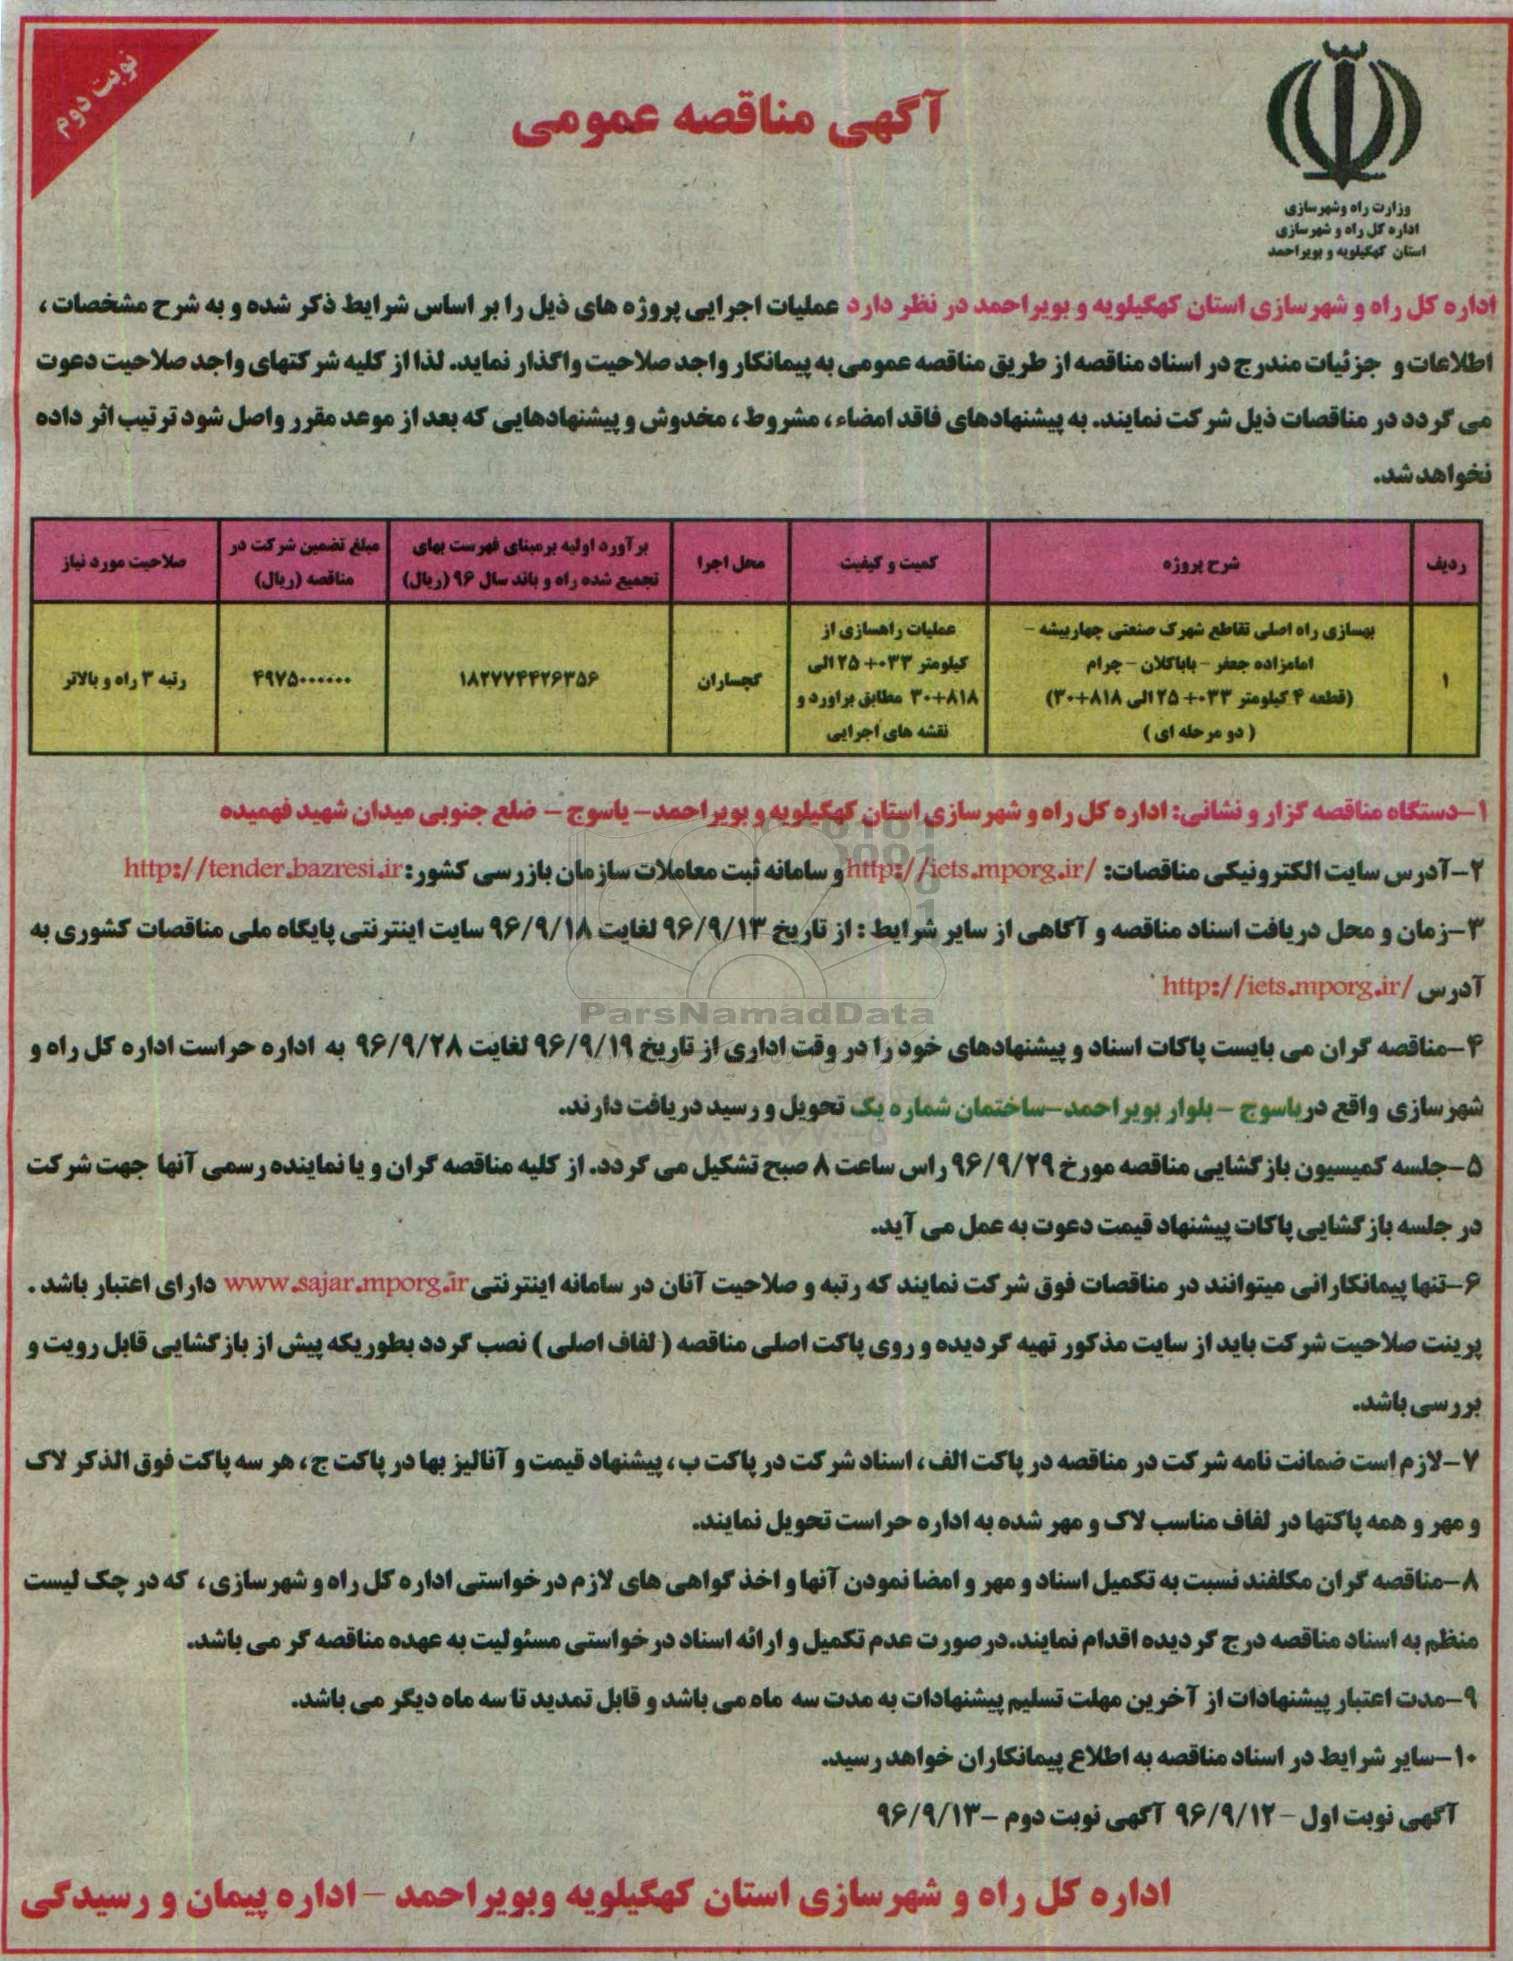 نوبت دوم
آگهی مناقصه عمومی
وزارت راه وشهرسازی
اداره کل راه و شهرسازی
استان کهگیلویه و بویراحمد
اداره کل راه و شهرسازی استان کهگیلویه و بویراحمد در نظر دارد عملیات اجرایی پروژه های ذیل را بر اساس شرایط ذکر شده و به شرح مشخصات ،
اطلاعات و جزئیات مندرج در اسناد مناقصه از طریق مناقصه عمومی به پیمانکار واجد صلاحیت واگذار نماید. لذا از کلیه شرکتهای واجد صلاحیت دعوت
می گردد در مناقصات ذیل شرکت نمایند. به پیشنهادهای فاقد امضاء ، مشروط ، مخدوش و پیشنهادهایی که بعد از موعد مقرر واصل شود ترتیب اثر داده
نخواهد شد.
ردیف
شرح پروژه
کمیت و کیفیت
محل اجرا
برآورد اولیه برمبنای فهرست بهای
تجمیع شده راه و باند سال ۹۶ (ریال)
مبلغ تضمین شرکت در
مناقصه (ریال)
صلاحیت مورد نیاز
۱
بهسازی راه اصلی تقاطع شهرک صنعتی چهاربیشه -
امامزاده جعفر - باباکلان - چرام
(قطعه ۴ کیلومتر ۰۳۳+۲۵ الی ۸۱۸+۳۰)
( دو مرحله ای )
عملیات راهسازی از
کیلومتر ۰۳۳+۲۵ الی
۸۱۸+۳۰ مطابق براورد و
نقشه های اجرایی
گچساران
۱۸۲۷۷۴۴۲۶۳۵۶
۴۹۷۵۰۰۰۰۰۰
رتبه ۳ راه و بالاتر
۱-دستگاه مناقصه گزار و نشانی: اداره کل راه و شهرسازی استان کهگیلویه و بویراحمد- یاسوج - ضلع جنوبی میدان شهید فهمیده
۲-آدرس سایت الکترونیکی مناقصات: http://iets.mporg.ir/ و سامانه ثبت معاملات سازمان بازرسی کشور: http://tender.bazresi.ir
۳-زمان و محل دریافت اسناد مناقصه و آگاهی از سایر شرایط : از تاریخ ۹۶/۹/۱۳ لغایت ۹۶/۹/۱۸ سایت اینترنتی پایگاه ملی مناقصات کشوری به
آدرس http://iets.mporg.ir/
ParsNamadData
۴-مناقصه گران می بایست پاکات اسناد و پیشنهادهای خود را در وقت اداری از تاریخ ۹۶/۹/۱۹ لغایت ۹۶/۹/۲۸ به اداره حراست اداره کل راه و
شهرسازی واقع دریاسوج - بلوار بویراحمد-ساختمان شماره یک تحویل و رسید دریافت دارند.
۵-جلسه کمیسیون بازگشایی مناقصه مورخ ۹۶/۹/۲۹ راس ساعت ۸ صبح تشکیل می گردد. از کلیه مناقصه گران و یا نماینده رسمی آنها جهت شرکت
در جلسه بازگشایی پاکات پیشنهاد قیمت دعوت به عمل می آید.
۶-تنها پیمانکارانی میتوانند در مناقصات فوق شرکت نمایند که رتبه و صلاحیت آنان در سامانه اینترنتی www.sajar.mporg.ir دارای اعتبار باشد .
پرینت صلاحیت شرکت باید از سایت مذکور تهیه گردیده و روی پاکت اصلی مناقصه ( لفاف اصلی ) نصب گردد بطوریکه پیش از بازگشایی قابل رویت و
بررسی باشد.
۷-لازم است ضمانت نامه شرکت در مناقصه در پاکت الف ، اسناد شرکت در پاکت ب ، پیشنهاد قیمت و آنالیز بها در پاکت ج ، هر سه پاکت فوق الذکر لاک
و مهر و همه پاکتها در لفاف مناسب لاک و مهر شده به اداره حراست تحویل نمایند.
۸-مناقصه گران مکلفند نسبت به تکمیل اسناد و مهر و امضا نمودن آنها و اخذ گواهی های لازم درخواستی اداره کل راه و شهرسازی ، که در چک لیست
منظم به اسناد مناقصه درج گردیده اقدام نمایند.درصورت عدم تکمیل و ارائه اسناد درخواستی مسئولیت به عهده مناقصه گر می باشد.
۹-مدت اعتبار پیشنهادات از آخرین مهلت تسلیم پیشنهادات به مدت سه ماه می باشد و قابل تمدید تا سه ماه دیگر می باشد.
۱۰-سایر شرایط در اسناد مناقصه به اطلاع پیمانکاران خواهد رسید.
آگهی نوبت اول - ۹۶/۹/۱۲ آگهی نوبت دوم -۹۶/۹/۱۳
اداره کل راه و شهرسازی استان کهگیلویه وبویراحمد - اداره پیمان و رسیدگی